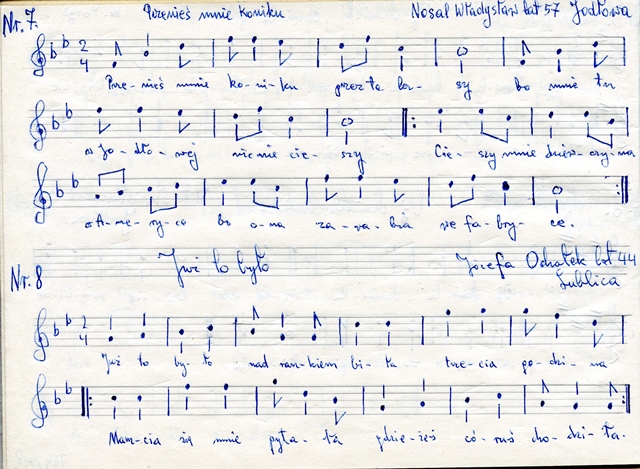 Nr. 7. Przenieś mnie koniku Nosal Władysław lat 57 Jodłowa
2 4
Prze-nieś mnie ko-ni-ku przez te la-sy bo mnie tu
w Jo-dło-wej nic nie cie-szy Cie-szy mnie dziew-czy-na
w A-me-ry-ce bo o-na za-ra-bia we fa-bry-ce.
Nr. 8 Już to było Józefa Ochałek lat 44
Lublica
2 4
Już to by-ło nad ran-kiem bi-ła trze-cia go-dzi-na
Mam-cia się mnie pyta-ła gdzie-żeś có-ruś cho-dzi-ła.